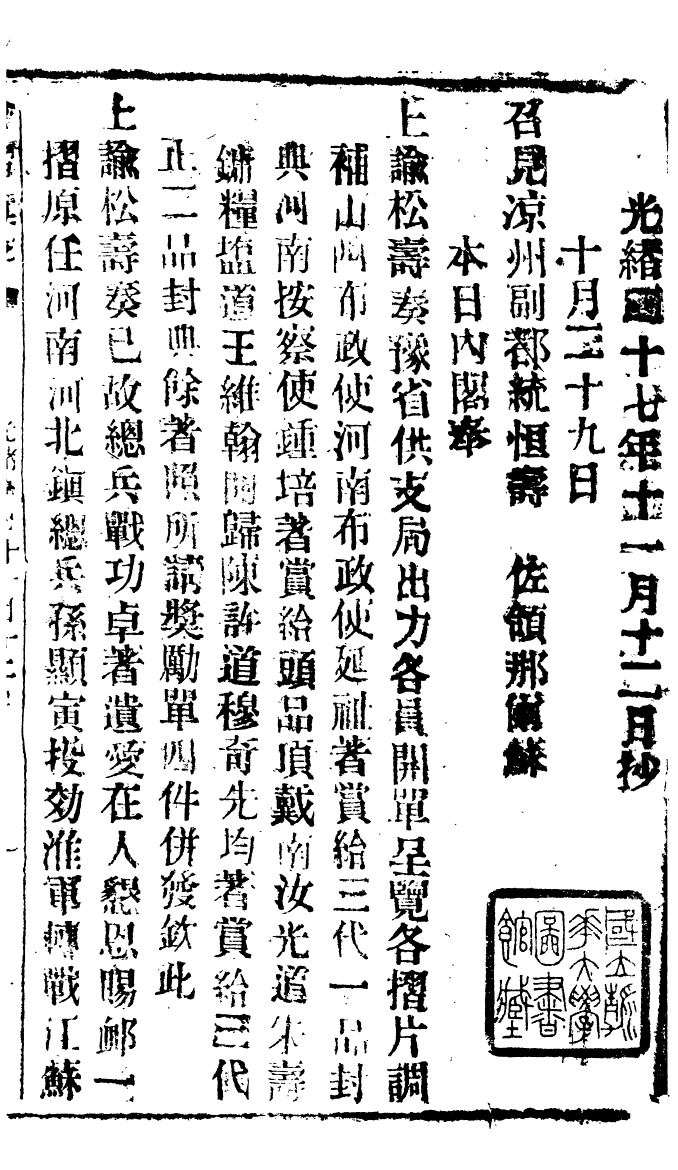 光緒國十七年十一月十二日抄
十月二十九日
召見凉州副都統恒壽　佐領那爾蘇
本日內閣奉
上諭松壽奏豫省供支局出力各員開單呈覽各摺片調
補山西布政使河南布政使延祉著賞給三代一品封
典河南按察使鍾培著賞給頭品頂戴南汝光道朱壽
鏞糧塩道王維翰開歸陳許道穆奇先均著賞給三代
正二品封典餘著照所請獎勵單四件併發欽此
上諭松壽奏已故總兵戰功卓著遺愛在人懇恩賜卹一
摺原任河南河北鎭總兵孫顯寅投効淮軍轉戰江蘇
國立清華大學圖書館藏